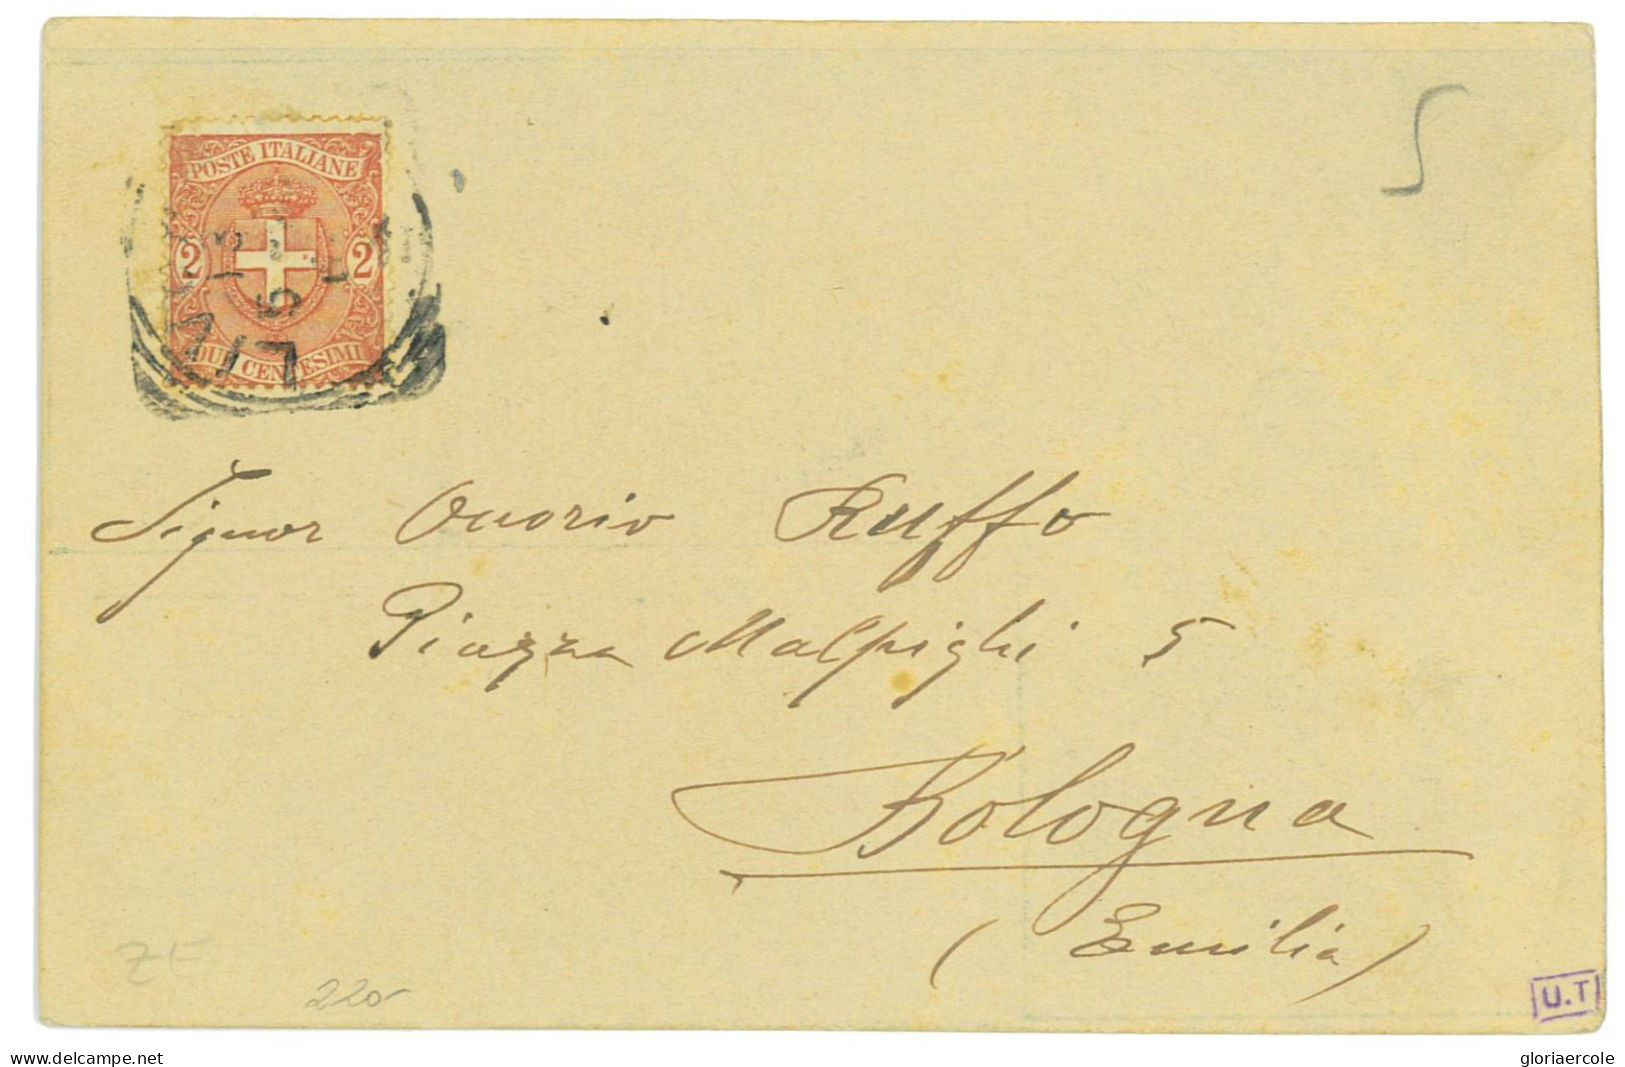 POSTE ITALIANE
2 2
DUE CENTESIMI
5
Signor Onorio Ruffo
Piazza Malpighi 5
Bologna
(Emilia)
220
U.T
www.delcampe.net
gloriaercole